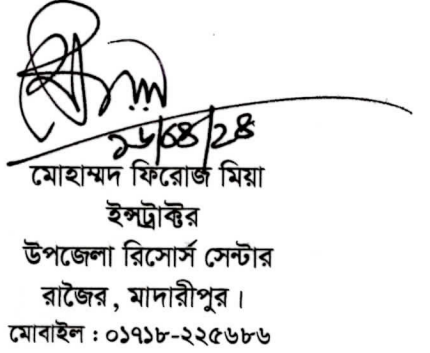 মোহাম্মদ ফিরোজ মিয়া
ইন্সট্রাক্টর
উপজেলা রিসোর্স সেন্টার
রাজৈর, মাদারীপুর।
মোবাইল : ০১৭১৮-২২৫৬৮৬